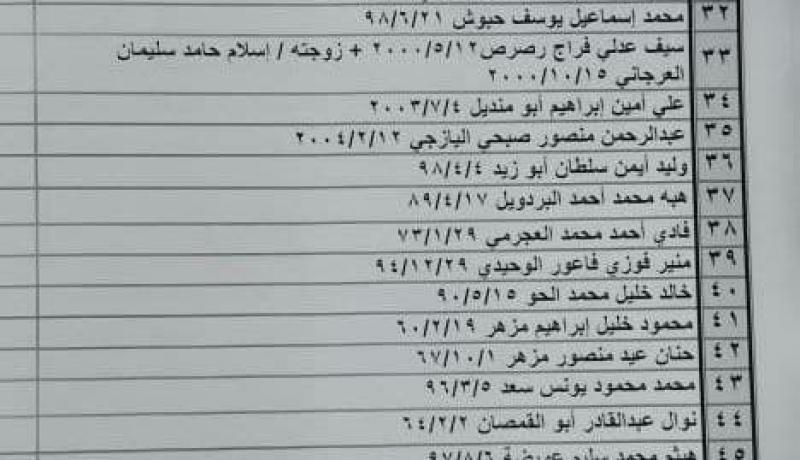 ٣٢ محمد إسماعيل يوسف حبوش ٩٨/٦/٢١
٣٣ سيف عدلي فراج رصرص٢٠٠٠/٥/١٢ + زوجته / إسلام حامد سليمان
العرجاني ٢٠٠٠/١٠/١٥
٣٤ علي أمين إبراهيم أبو منديل ٢٠٠٣/٧/٤
٣٥ عبدالرحمن منصور صبحي اليازجي ٢٠٠٤/٢/١٢
٣٦ وليد أيمن سلطان أبو زيد ٩٨/٤/٤
٣٧ هبه محمد أحمد البردويل ٨٩/٤/١٧
٣٨ فادي أحمد محمد العجرمي ٧٣/١/٢٩
٣٩ منير فوزي فاعور الوحيدي ٩٤/١٢/٢٩
٤٠ خالد خليل محمد الحو ٩٠/٥/١٥
٤١ محمود خليل إبراهيم مزهر ٦٠/٢/١٩
٤٢ حنان عيد منصور مزهر ٦٧/١٠/١
٤٣ محمد محمود يونس سعد ٩٦/٣/٥
٤٤ نوال عبدالقادر أبو القمصان ٦٤/٢/٢
٤٥ هيثم محمد سليم ٩٧/٨/٦